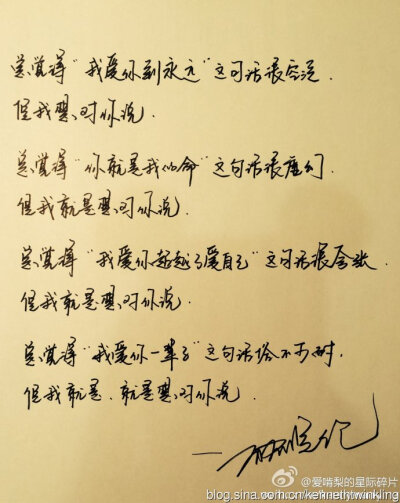 总觉得“我爱你到永远”这句话很空泛.
但我想对你说.
总觉得“你就是我的命”这句话很虚幻.
但我就是想对你说.
总觉得“我爱你超越了爱自己”这句话很夸张.
但我就是想对你说.
总觉得“我爱你一辈子”这句话俗不可耐,
但我就是.就是想对你说.
@爱啃梨的星际碎片
blog.sina.com.cn/kennethtwinkling